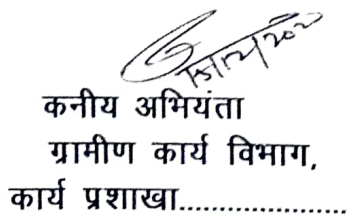 कनीय अभियंता
ग्रामीण कार्य विभाग,
कार्य प्रशाखा.....................